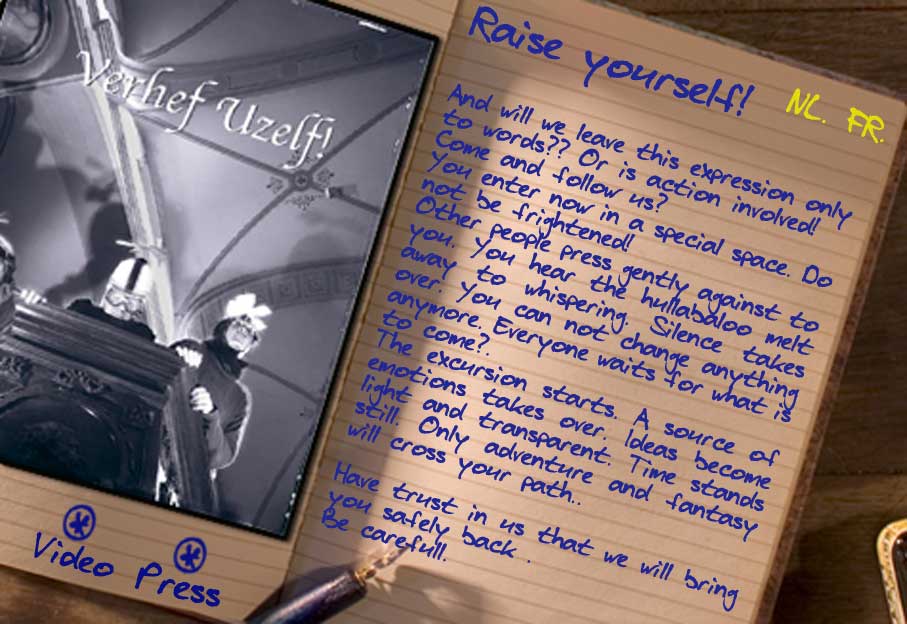 Verhef Uzelf!
Video Press
Raise yourself!
NL. FR.
And will we leave this expression only
to words?? Or is action involved!
Come and follow us?
You enter now in a special space. Do
not be frightened!
Other people press gently against to
you. You hear the hullabaloo melt
away to whispering. Silence takes
over. You can not change anything
anymore. Everyone waits for what is
to come?.
The excursion starts. A source of
emotions takes over. Ideas become
light and transparent. Time stands
still. Only adventure and fantasy
will cross your path..
Have trust in us that we will bring
you safely back .
Be carefull.